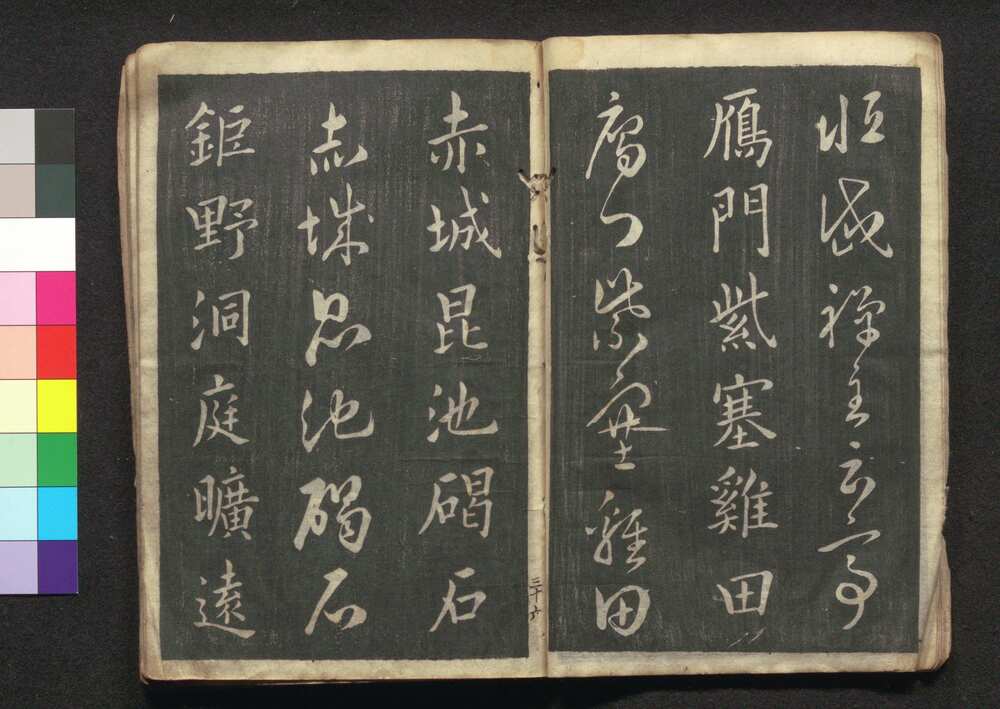 恒岱禪主云亭
鴈門紫塞雞田
鴈門紫塞雞田
赤城昆池碣石
赤城昆池碣石
鉅野洞庭曠遠
三十六